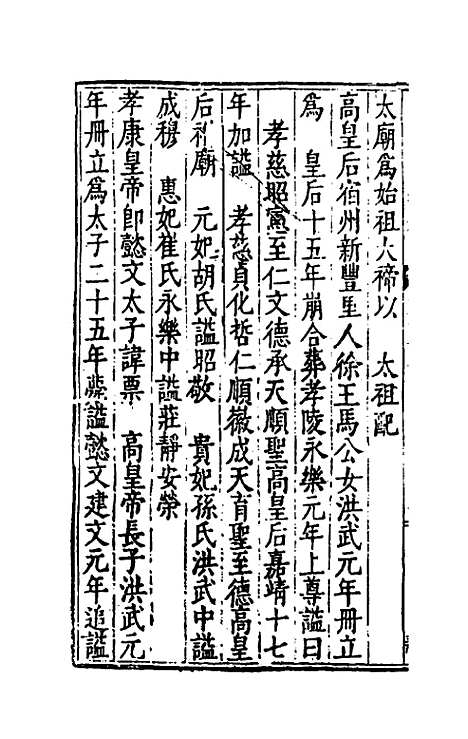 太廟爲始祖大禘以　太祖配
高皇后宿州新豐里人徐王馬公女洪武元年冊立
爲　皇后十五年崩合葬孝陵永樂元年上尊謚曰
孝慈昭憲至仁文德承天順聖高皇后嘉靖十七
年加謚　孝慈貞化哲仁順徽成天育聖至德高皇
后祔廟　元妃胡氏謚昭敬　貴妃孫氏洪武中謚
成穆　惠妃崔氏永樂中謚莊靜安榮
孝康皇帝即懿文太子諱票　高皇帝長子洪武元
年冊立爲太子二十五年薨謚懿文建文元年追謚